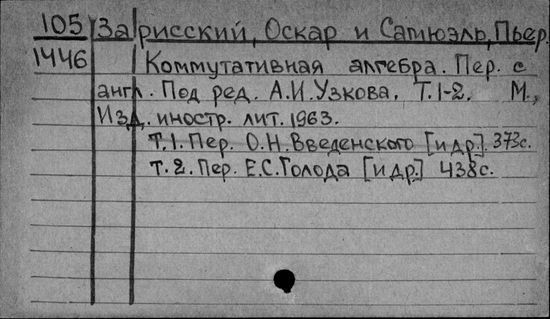 105 Зарисский, Оскар и Самюэль, Пьер.
1446 Коммутативная алгебра. Пер. с
англ. Под ред. А.И.Узкова. Т.1-2. М.,
Изд. иностр. лит. 1963.
Т.1. Пер. О.Н.Введенского [и др.]. 373с.
Т.2. Пер. Е.С.Голода [и др.] 438с.